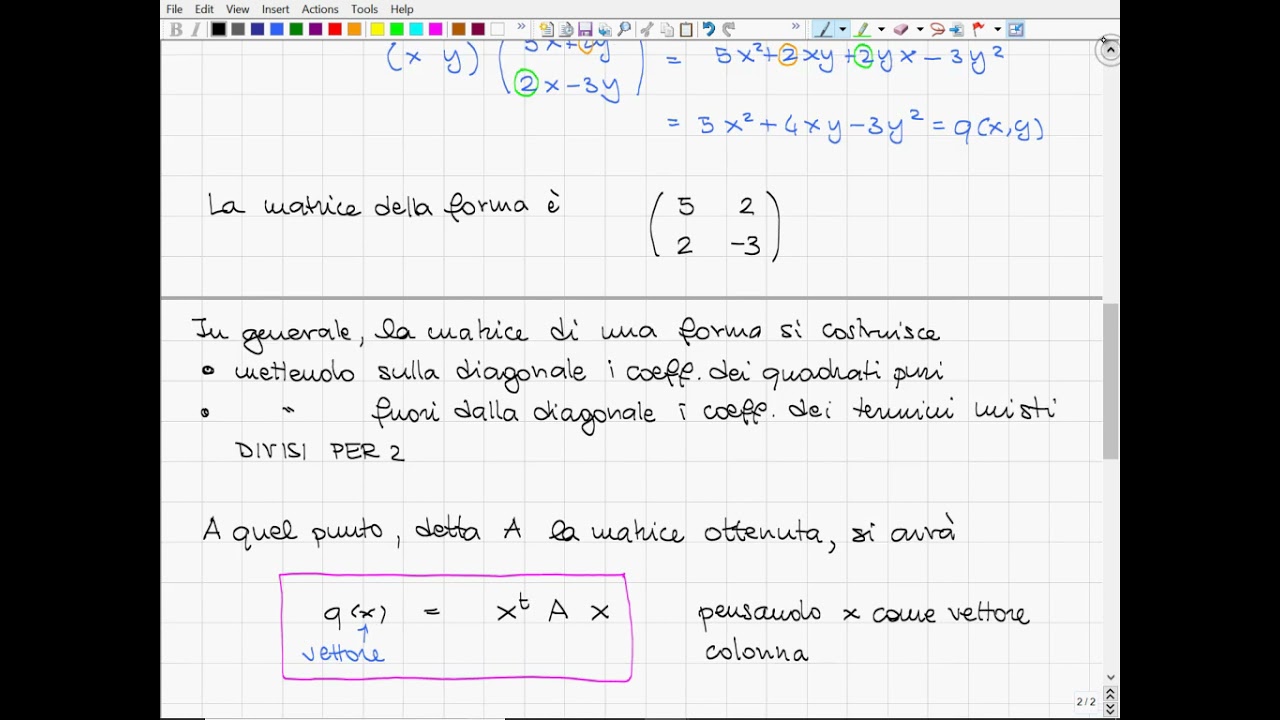 File Edit View Insert Actions Tools Help
B I U
(x y) (5x+2y
2x-3y) = 5x²+2xy+2yx-3y²
= 5x²+4xy-3y² = q(x,y)
La matrice della forma è (5 2
2 -3)
In generale, la matrice di una forma si costruisce
• mettendo sulla diagonale i coeff. dei quadrati puri
• " fuori dalla diagonale i coeff. dei termini misti
DIVISI PER 2
A quel punto, detta A la matrice ottenuta, si avrà
q(x) = xᵗ A x pensando x come vettore
↑
vettore colonna
2/2